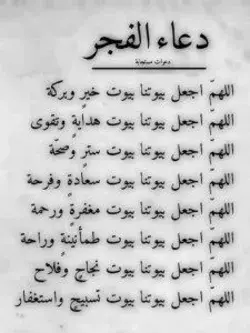 دعاء الفجر
دعوات مستجابة
اللهمّ اجعل بيوتنا بيوت خيرٍ وبركة
اللهمّ اجعل بيوتنا بيوت هدايةٍ وتقوى
اللهمّ اجعل بيوتنا بيوت سترٍ وصحّة
اللهمّ اجعل بيوتنا بيوت سعادةٍ وفرحة
اللهمّ اجعل بيوتنا بيوت مغفرةٍ ورحمة
اللهمّ اجعل بيوتنا بيوت طمأنينةٍ وراحة
اللهمّ اجعل بيوتنا بيوت نجاحٍ وفلاح
اللهمّ اجعل بيوتنا بيوت تسبيحٍ واستغفار